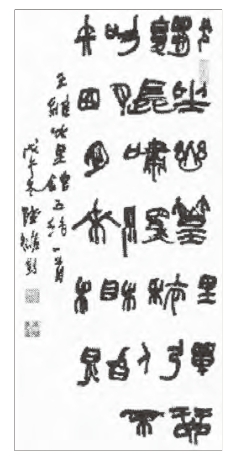 獨坐幽篁里彈琴
復長嘯深林人不
知明月來相照
王維竹里館五言一首
戊午冬 陸維釗